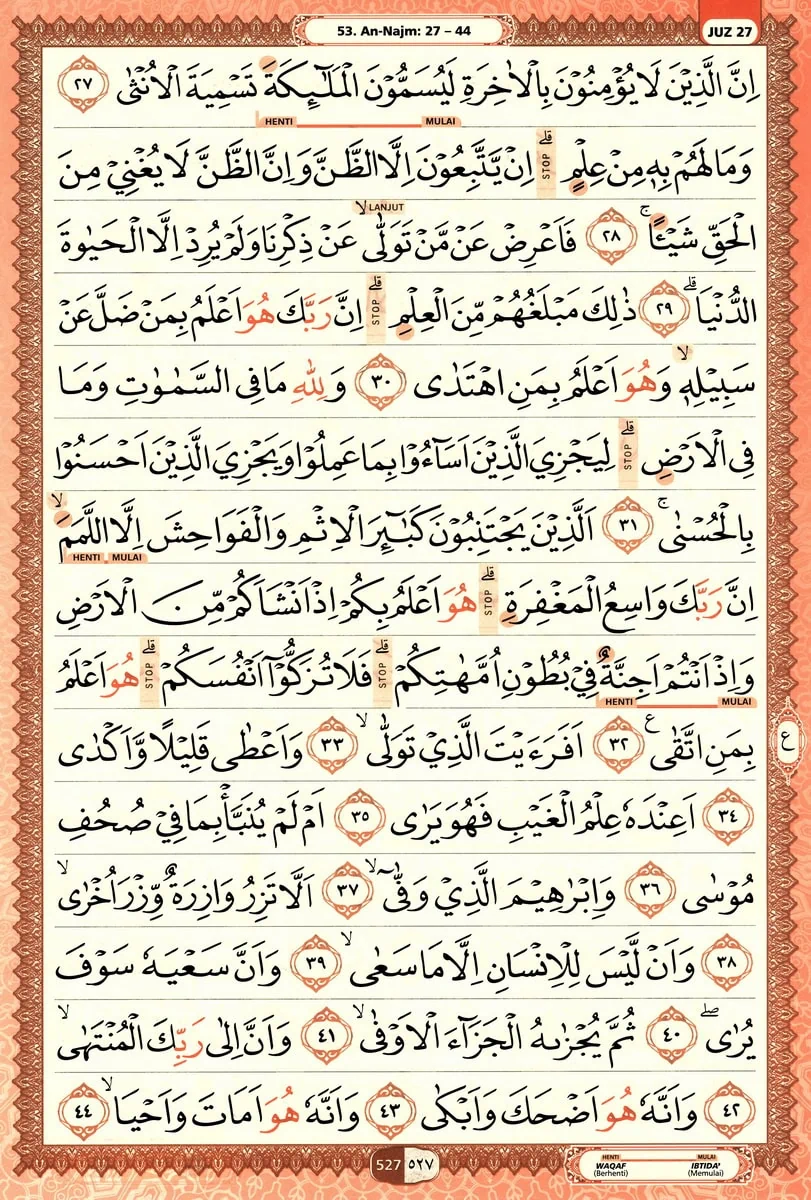 53. An-Najm: 27 – 44
JUZ 27
اِنَّ الَّذِيْنَ لَا يُؤْمِنُوْنَ بِالْاٰخِرَةِ لَيُسَمُّوْنَ الْمَلٰۤىِٕكَةَ تَسْمِيَةَ الْاُنْثٰى ٢٧
HENTI MULAI
وَمَا لَهُمْ بِهٖ مِنْ عِلْمٍ ۗ STOP اِنْ يَّتَّبِعُوْنَ اِلَّا الظَّنَّ وَاِنَّ الظَّنَّ لَا يُغْنِيْ مِنَ
الْحَقِّ شَيْـًٔا ۚ ٢٨ فَاَعْرِضْ عَنْ مَّنْ تَوَلّٰى ۙ LANJUT عَنْ ذِكْرِنَا وَلَمْ يُرِدْ اِلَّا الْحَيٰوةَ
الدُّنْيَا ۗ ٢٩ ذٰلِكَ مَبْلَغُهُمْ مِّنَ الْعِلْمِ ۗ STOP اِنَّ رَبَّكَ هُوَ اَعْلَمُ بِمَنْ ضَلَّ عَنْ
سَبِيْلِهٖ ۙ وَهُوَ اَعْلَمُ بِمَنِ اهْتَدٰى ٣٠ وَلِلّٰهِ مَا فِى السَّمٰوٰتِ وَمَا
فِى الْاَرْضِ ۗ STOP لِيَجْزِيَ الَّذِيْنَ اَسَاۤءُوْا بِمَا عَمِلُوْا وَيَجْزِيَ الَّذِيْنَ اَحْسَنُوْا
بِالْحُسْنٰى ۚ ٣١ اَلَّذِيْنَ يَجْتَنِبُوْنَ كَبٰۤىِٕرَ الْاِثْمِ وَالْفَوَاحِشَ اِلَّا اللَّمَمَ ۙ
HENTI MULAI
اِنَّ رَبَّكَ وَاسِعُ الْمَغْفِرَةِ ۗ STOP هُوَ اَعْلَمُ بِكُمْ اِذْ اَنْشَاَكُمْ مِّنَ الْاَرْضِ
وَاِذْ اَنْتُمْ اَجِنَّةٌ فِيْ بُطُوْنِ اُمَّهٰتِكُمْ ۗ STOP فَلَا تُزَكُّوْٓا اَنْفُسَكُمْ ۗ STOP هُوَ اَعْلَمُ
HENTI MULAI
بِمَنِ اتَّقٰى ع ٣٢ اَفَرَءَيْتَ الَّذِيْ تَوَلّٰى ۙ ٣٣ وَاَعْطٰى قَلِيْلًا وَّاَكْدٰى
ع
٣٤ اَعِنْدَهٗ عِلْمُ الْغَيْبِ فَهُوَ يَرٰى ٣٥ اَمْ لَمْ يُنَبَّأْ بِمَا فِيْ صُحُفِ
مُوْسٰى ٣٦ وَاِبْرٰهِيْمَ الَّذِيْ وَفّٰىٓ ۙ ٣٧ اَلَّا تَزِرُ وَازِرَةٌ وِّزْرَ اُخْرٰى ۙ
٣٨ وَاَنْ لَّيْسَ لِلْاِنْسَانِ اِلَّا مَا سَعٰى ۙ ٣٩ وَاَنَّ سَعْيَهٗ سَوْفَ
يُرٰى ۖ ٤٠ ثُمَّ يُجْزٰىهُ الْجَزَاۤءَ الْاَوْفٰى ۙ ٤١ وَاَنَّ اِلٰى رَبِّكَ الْمُنْتَهٰى ۙ
٤٢ وَاَنَّهٗ هُوَ اَضْحَكَ وَاَبْكٰى ٤٣ وَاَنَّهٗ هُوَ اَمَاتَ وَاَحْيَا ۙ ٤٤
527 ٥٢٧
HENTI MULAI
WAQAF IBTIDA'
(Berhenti) (Memulai)